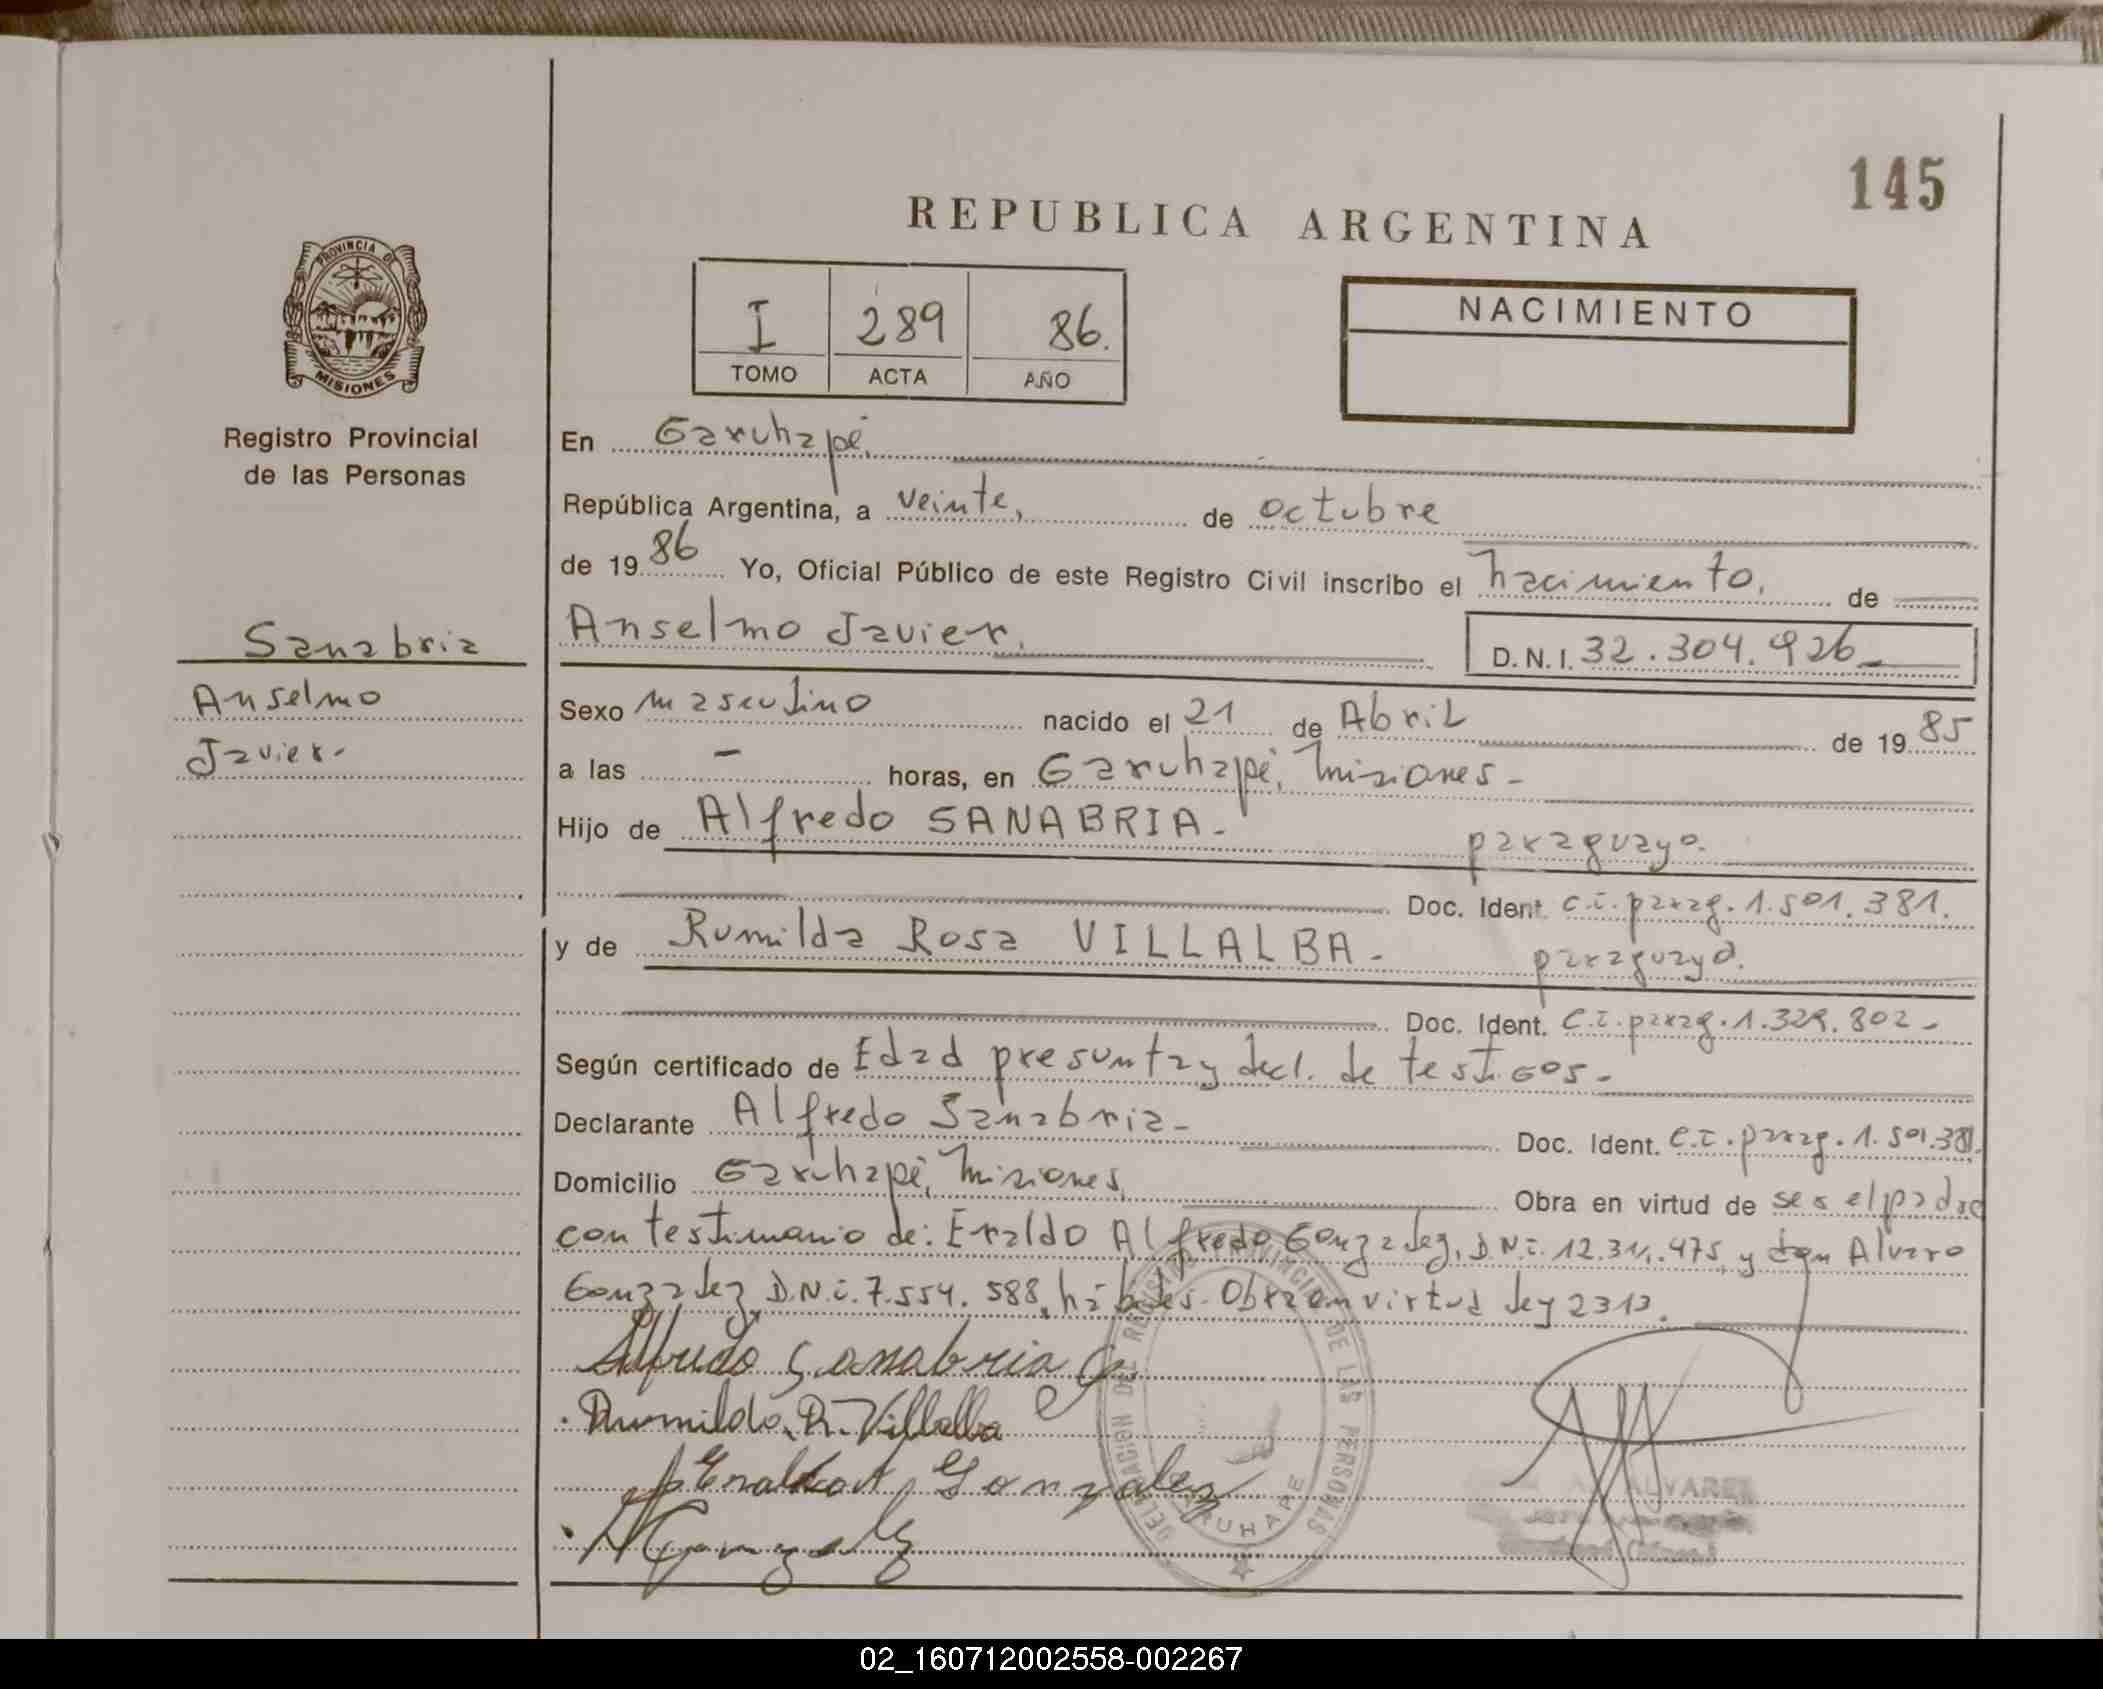 145
REPUBLICA ARGENTINA
PROVINCIA DE
MISIONES
Registro Provincial
de las Personas
I 289 86.
TOMO ACTA AÑO
NACIMIENTO
En Garuhapé,
República Argentina, a veinte, de octubre
de 19 86 Yo, Oficial Público de este Registro Civil inscribo el nacimiento, de
Anselmo Javier, D.N.I. 32.304.926
Sanabria
Anselmo
Javier-
Sexo masculino nacido el 21 de Abril de 19 85
a las - horas, en Garuhapé, Misiones -
Hijo de Alfredo SANABRIA - paraguayo.
Doc. Ident. C.I. parag. 1.501.381.
y de Rumilda Rosa VILLALBA - paraguaya.
Doc. Ident. C.I. parag. 1.329.802 -
Según certificado de Edad presunta y decl. de testigos -
Declarante Alfredo Sanabria - Doc. Ident. C.I. parag. 1.501.381.
Domicilio Garuhapé, Misiones, Obra en virtud de ser el padre
con testimonio de: Eraldo Alfredo Gonzalez, D.N.I. 12.311.475, y don Alvaro
Gonzalez, D.N.I. 7.554.588, hábiles. Obra en virtud ley 2313.
Alfredo Sanabria G.
Rumilda R. Villalba
Eraldo A Gonzalez
A Gonzalez
DELEGACION DEL REGISTRO PROVINCIAL DE LAS PERSONAS
GARUHAPE
ALVAREZ
02_160712002558-002267